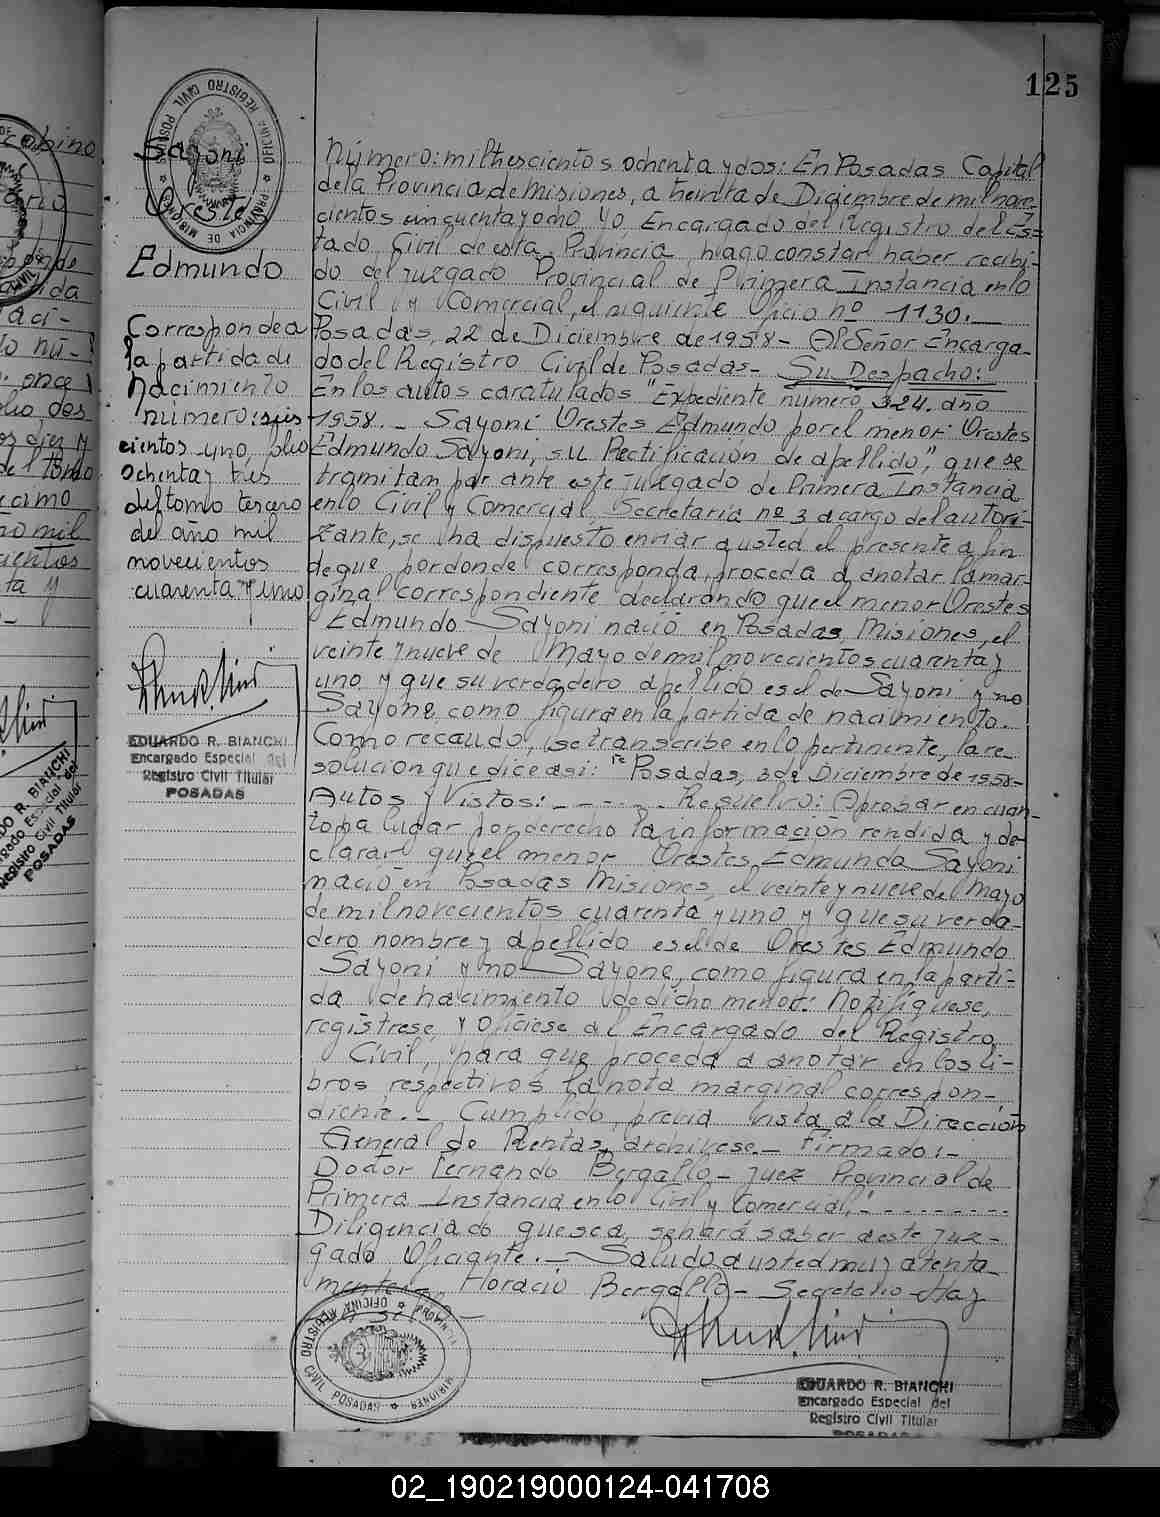 125
Sayoni
Oreste
Edmundo
Corresponde a
la partida de
Nacimiento
número: seis
cientos uno, folio
ochenta y tres
del tomo tercero
del año mil
novecientos
cuarenta y uno
EDUARDO R. BIANCHI
Encargado Especial del
Registro Civil Titular
POSADAS
Número: mil trescientos ochenta y dos: En Posadas Capital
de la Provincia de Misiones, a treinta de Diciembre de mil nove-
cientos cincuenta y ocho yo Encargado del Registro del Es=
tado Civil de esta Provincia hago constar haber recibi-
do del Juzgado Provincial de Primera Instancia en lo
Civil y Comercial, el siguiente Oficio nº 1130.—
Posadas, 22 de Diciembre de 1958- Al Señor Encarga-
do del Registro Civil de Posadas- Su Despacho:
En los autos caratulados "Expediente número 324. año
1958.- Sayoni Orestes Edmundo por el menor: Orestes
Edmundo Sayoni, su Rectificación de apellido", que se
tramitan por ante este Juzgado de Primera Instancia
en lo Civil y Comercial Secretaria nº 3 a cargo del autori-
zante, se ha dispuesto enviar a usted el presente a fin
de que por donde corresponda, proceda a anotar la mar-
ginal correspondiente declarando que el menor Orestes
Edmundo Sayoni nació en Posadas, Misiones, el
veinte y nueve de Mayo de mil novecientos cuarenta y
uno y que su verdadero apellido es el de Sayoni y no
Sayone, como figura en la partida de nacimiento.
Como recaudo, se transcribe en lo pertinente, la re-
solución que dice asi: "Posadas, 3 de Diciembre de 1958-
Autos y Vistos:- - - - - Resuelvo: Aprobar en cuan-
to ha lugar por derecho la información rendida y de-
clarar que el menor Orestes Edmundo Sayoni
nació en Posadas Misiones, el veinte y nueve de Mayo
de mil novecientos cuarenta y uno y que su verda-
dero nombre y apellido es el de Orestes Edmundo
Sayoni y no Sayone, como figura en la parti-
da de nacimiento de dicho menor. Notifíquese,
regístrese y Ofíciese al Encargado del Registro
Civil, para que proceda a anotar en los li-
bros respectivos la nota marginal correspon-
diente.- Cumplido, previa vista a la Dirección
General de Rentas, archívese.- Firmado:-
Doctor Fernando Bergallo- Juez Provincial de
Primera Instancia en lo Civil y Comercial." - - - - - - - -
Diligenciado que sea, se hará saber a este Juz-
gado Oficiante.- Saludo a usted muy atenta-
mente.- Horacio Bergallo- Secretario- Hay
EDUARDO R. BIANCHI
Encargado Especial del
Registro Civil Titular
POSADAS
PROVINCIA DE MISIONES
OFICINA REGISTRO CIVIL POSADAS
02_190219000124-041708